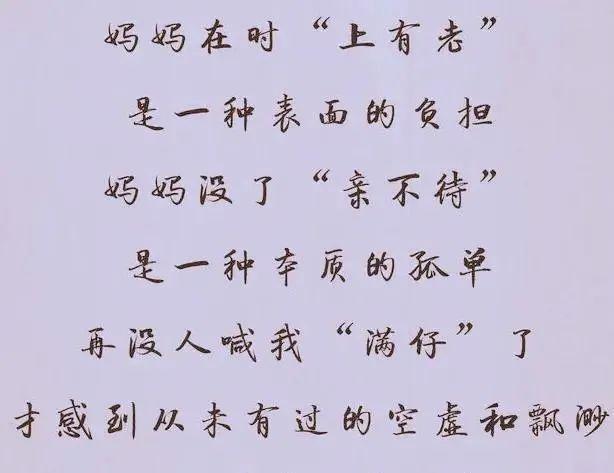 妈妈在时“上有老”
是一种表面的负担
妈妈没了“亲不待”
是一种本质的孤单
再没人喊我“满仔”了
才感到从未有过的空虚和飘渺